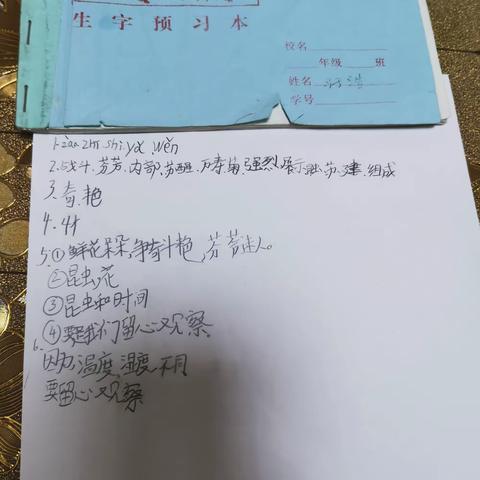 生字预习本
校名
年级 班
姓名
学号
2.战斗.芬芳.内部.苏醒.万寿菊.强烈.展示.建.组成
3.奇.艳
4.
5.①鲜花朵朵,争奇斗艳,芬芳迷人。
②昆虫,花
③昆虫和时间
④要我们留心观察
6.
因为,温度,湿度不同
要留心观察